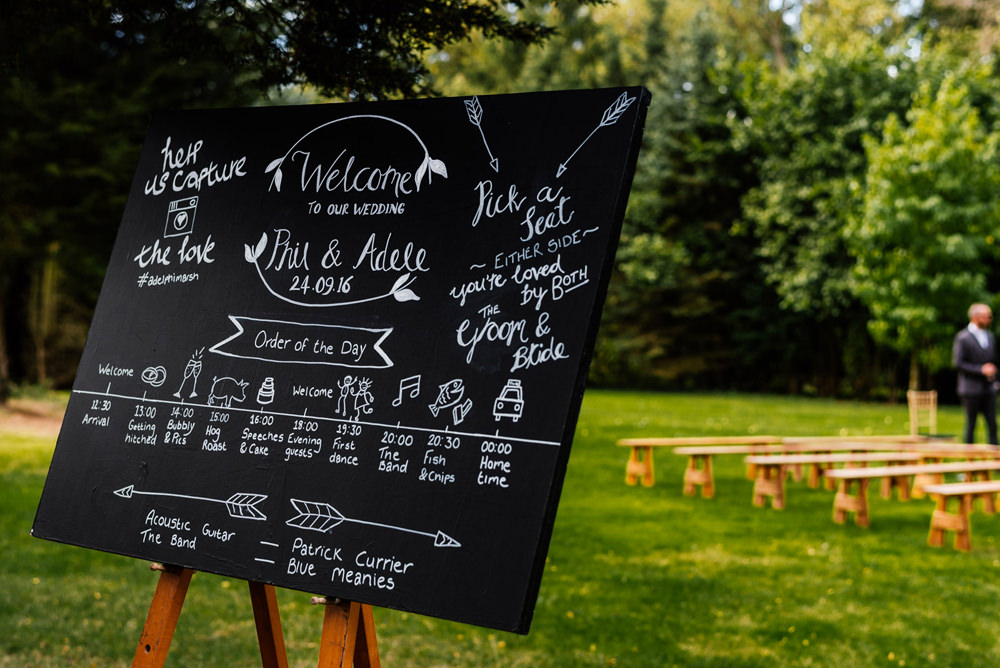 help
us capture
the love
#adelphimarsh
Welcome
TO OUR WEDDING
Phil & Adele
24.09.16
Pick a
Seat
~ EITHER SIDE ~
you're loved
by BOTH
THE
Groom &
Bride
Order of the Day
Welcome
12:30
Arrival
13:00
Getting
hitched
14:00
Bubbly
& Pics
15:00
Hog
Roast
16:00
Speeches
& Cake
Welcome
18:00
Evening
guests
19:30
First
dance
20:00
The
Band
20:30
Fish
& Chips
00:00
Home
time
Acoustic Guitar — Patrick Currier
The Band — Blue Meanies